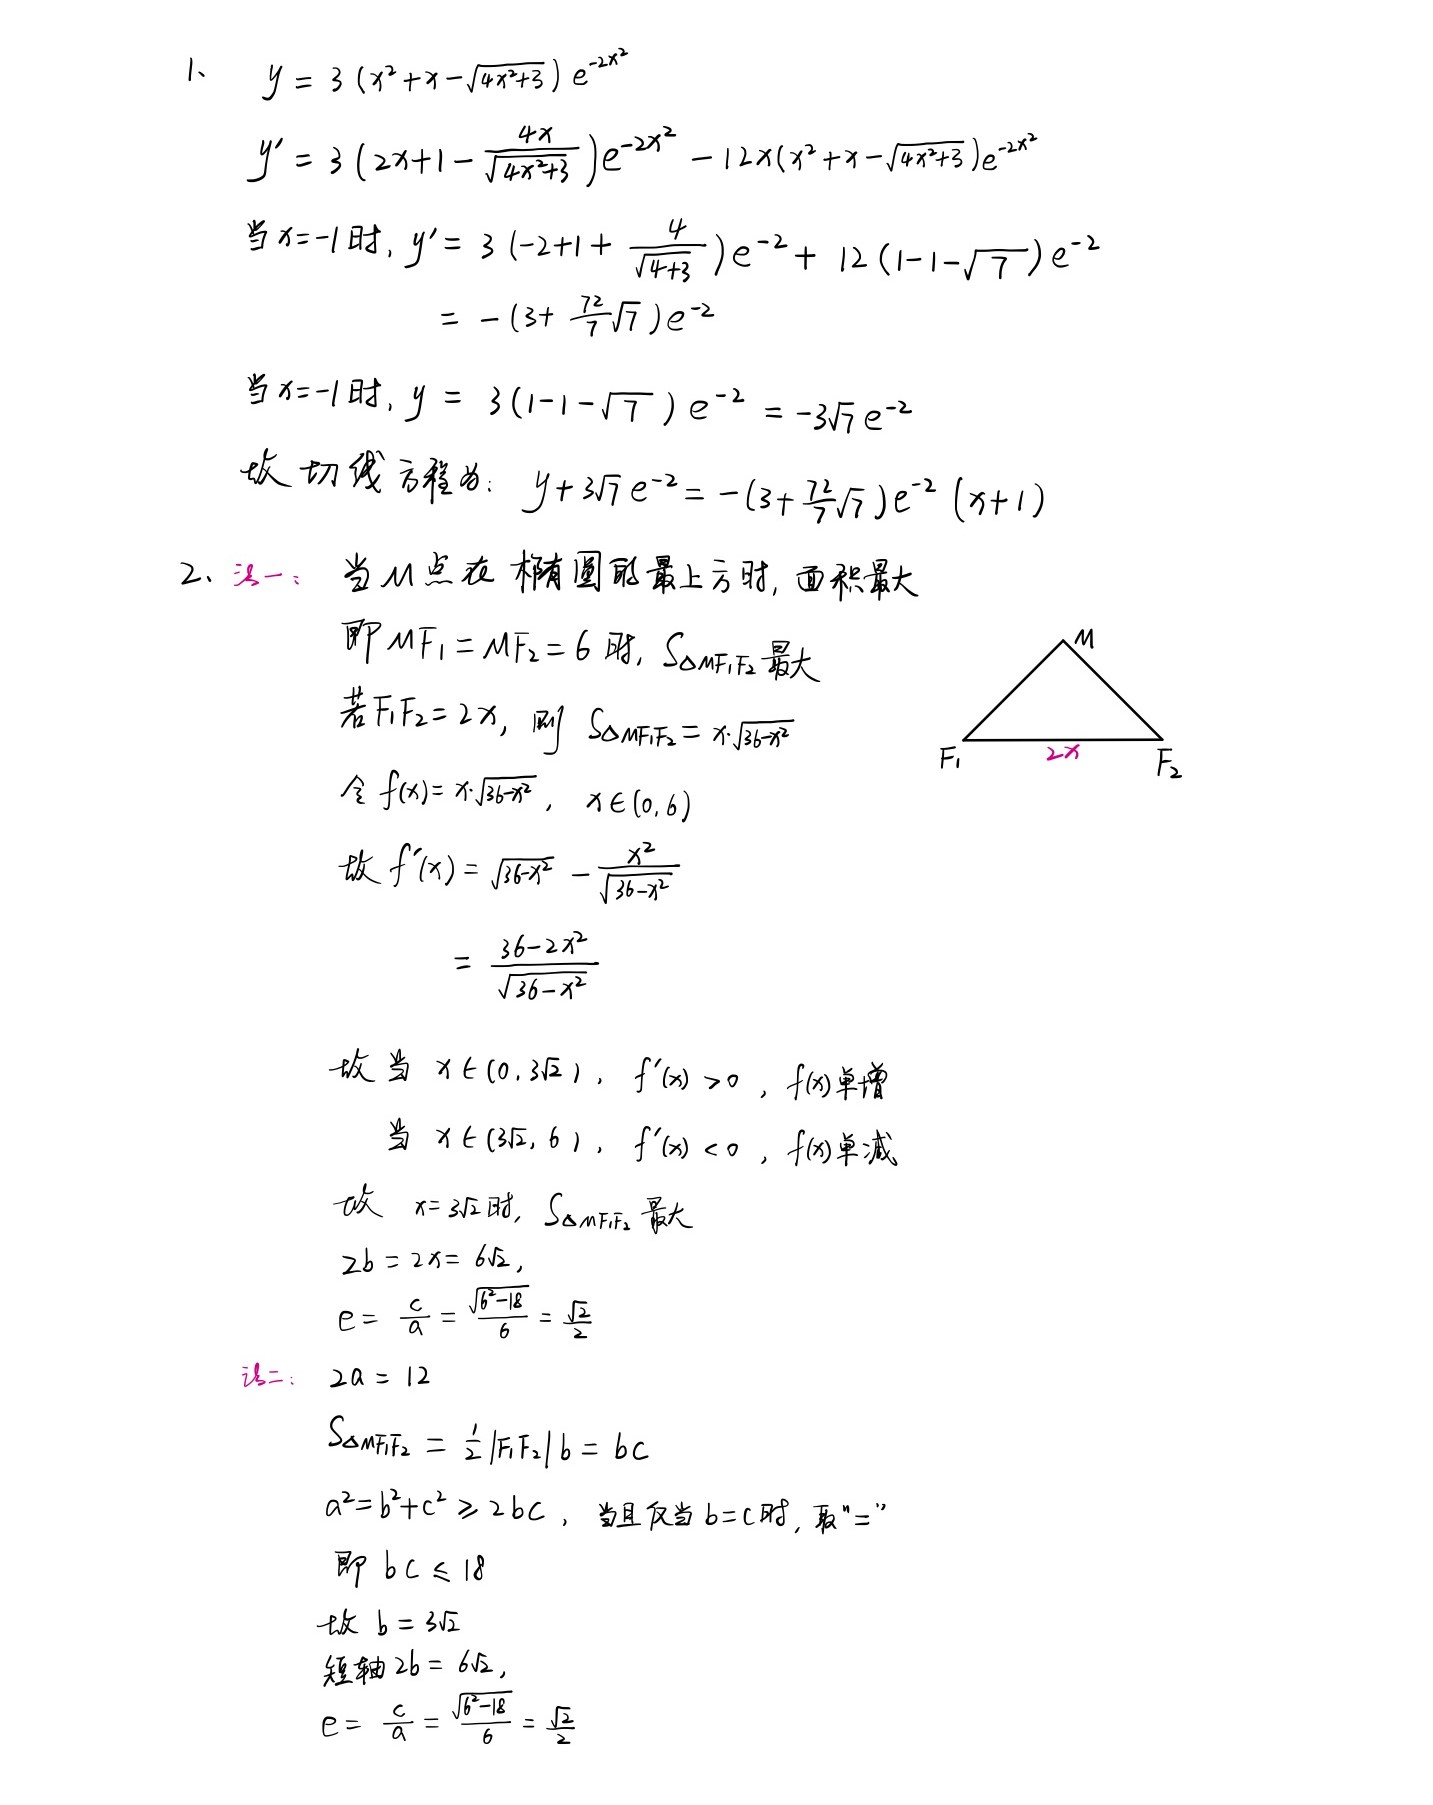 1、 y = 3(x²+x-√(4x²+3))e^(-2x²)
y′ = 3(2x+1-4x/√(4x²+3))e^(-2x²) - 12x(x²+x-√(4x²+3))e^(-2x²)
当x=-1时, y′ = 3(-2+1+4/√(4+3))e^(-2) + 12(1-1-√7)e^(-2)
= -(3+72/7√7)e^(-2)
当x=-1时, y = 3(1-1-√7)e^(-2) = -3√7e^(-2)
故切线方程为: y+3√7e^(-2) = -(3+72/7√7)e^(-2)(x+1)
2、法一: 当M点在椭圆的最上方时, 面积最大
即MF₁=MF₂=6时, S△MF₁F₂最大
若F₁F₂=2x, 则 S△MF₁F₂=x·√(36-x²)
令f(x)=x·√(36-x²), x∈(0,6)
M
F₁ 2x F₂
故f′(x)=√(36-x²) - x²/√(36-x²)
= (36-2x²)/√(36-x²)
故当 x∈(0,3√2), f′(x)>0, f(x)单增
当 x∈(3√2,6), f′(x)<0, f(x)单减
故 x=3√2时, S△MF₁F₂最大
2b=2x=6√2,
e = c/a = √(6²-18)/6 = √2/2
法二: 2a=12
S△MF₁F₂ = 1/2|F₁F₂|b = bc
a²=b²+c²≥2bc, 当且仅当b=c时, 取"="
即 bc≤18
故 b=3√2
短轴2b=6√2,
e = c/a = √(6²-18)/6 = √2/2